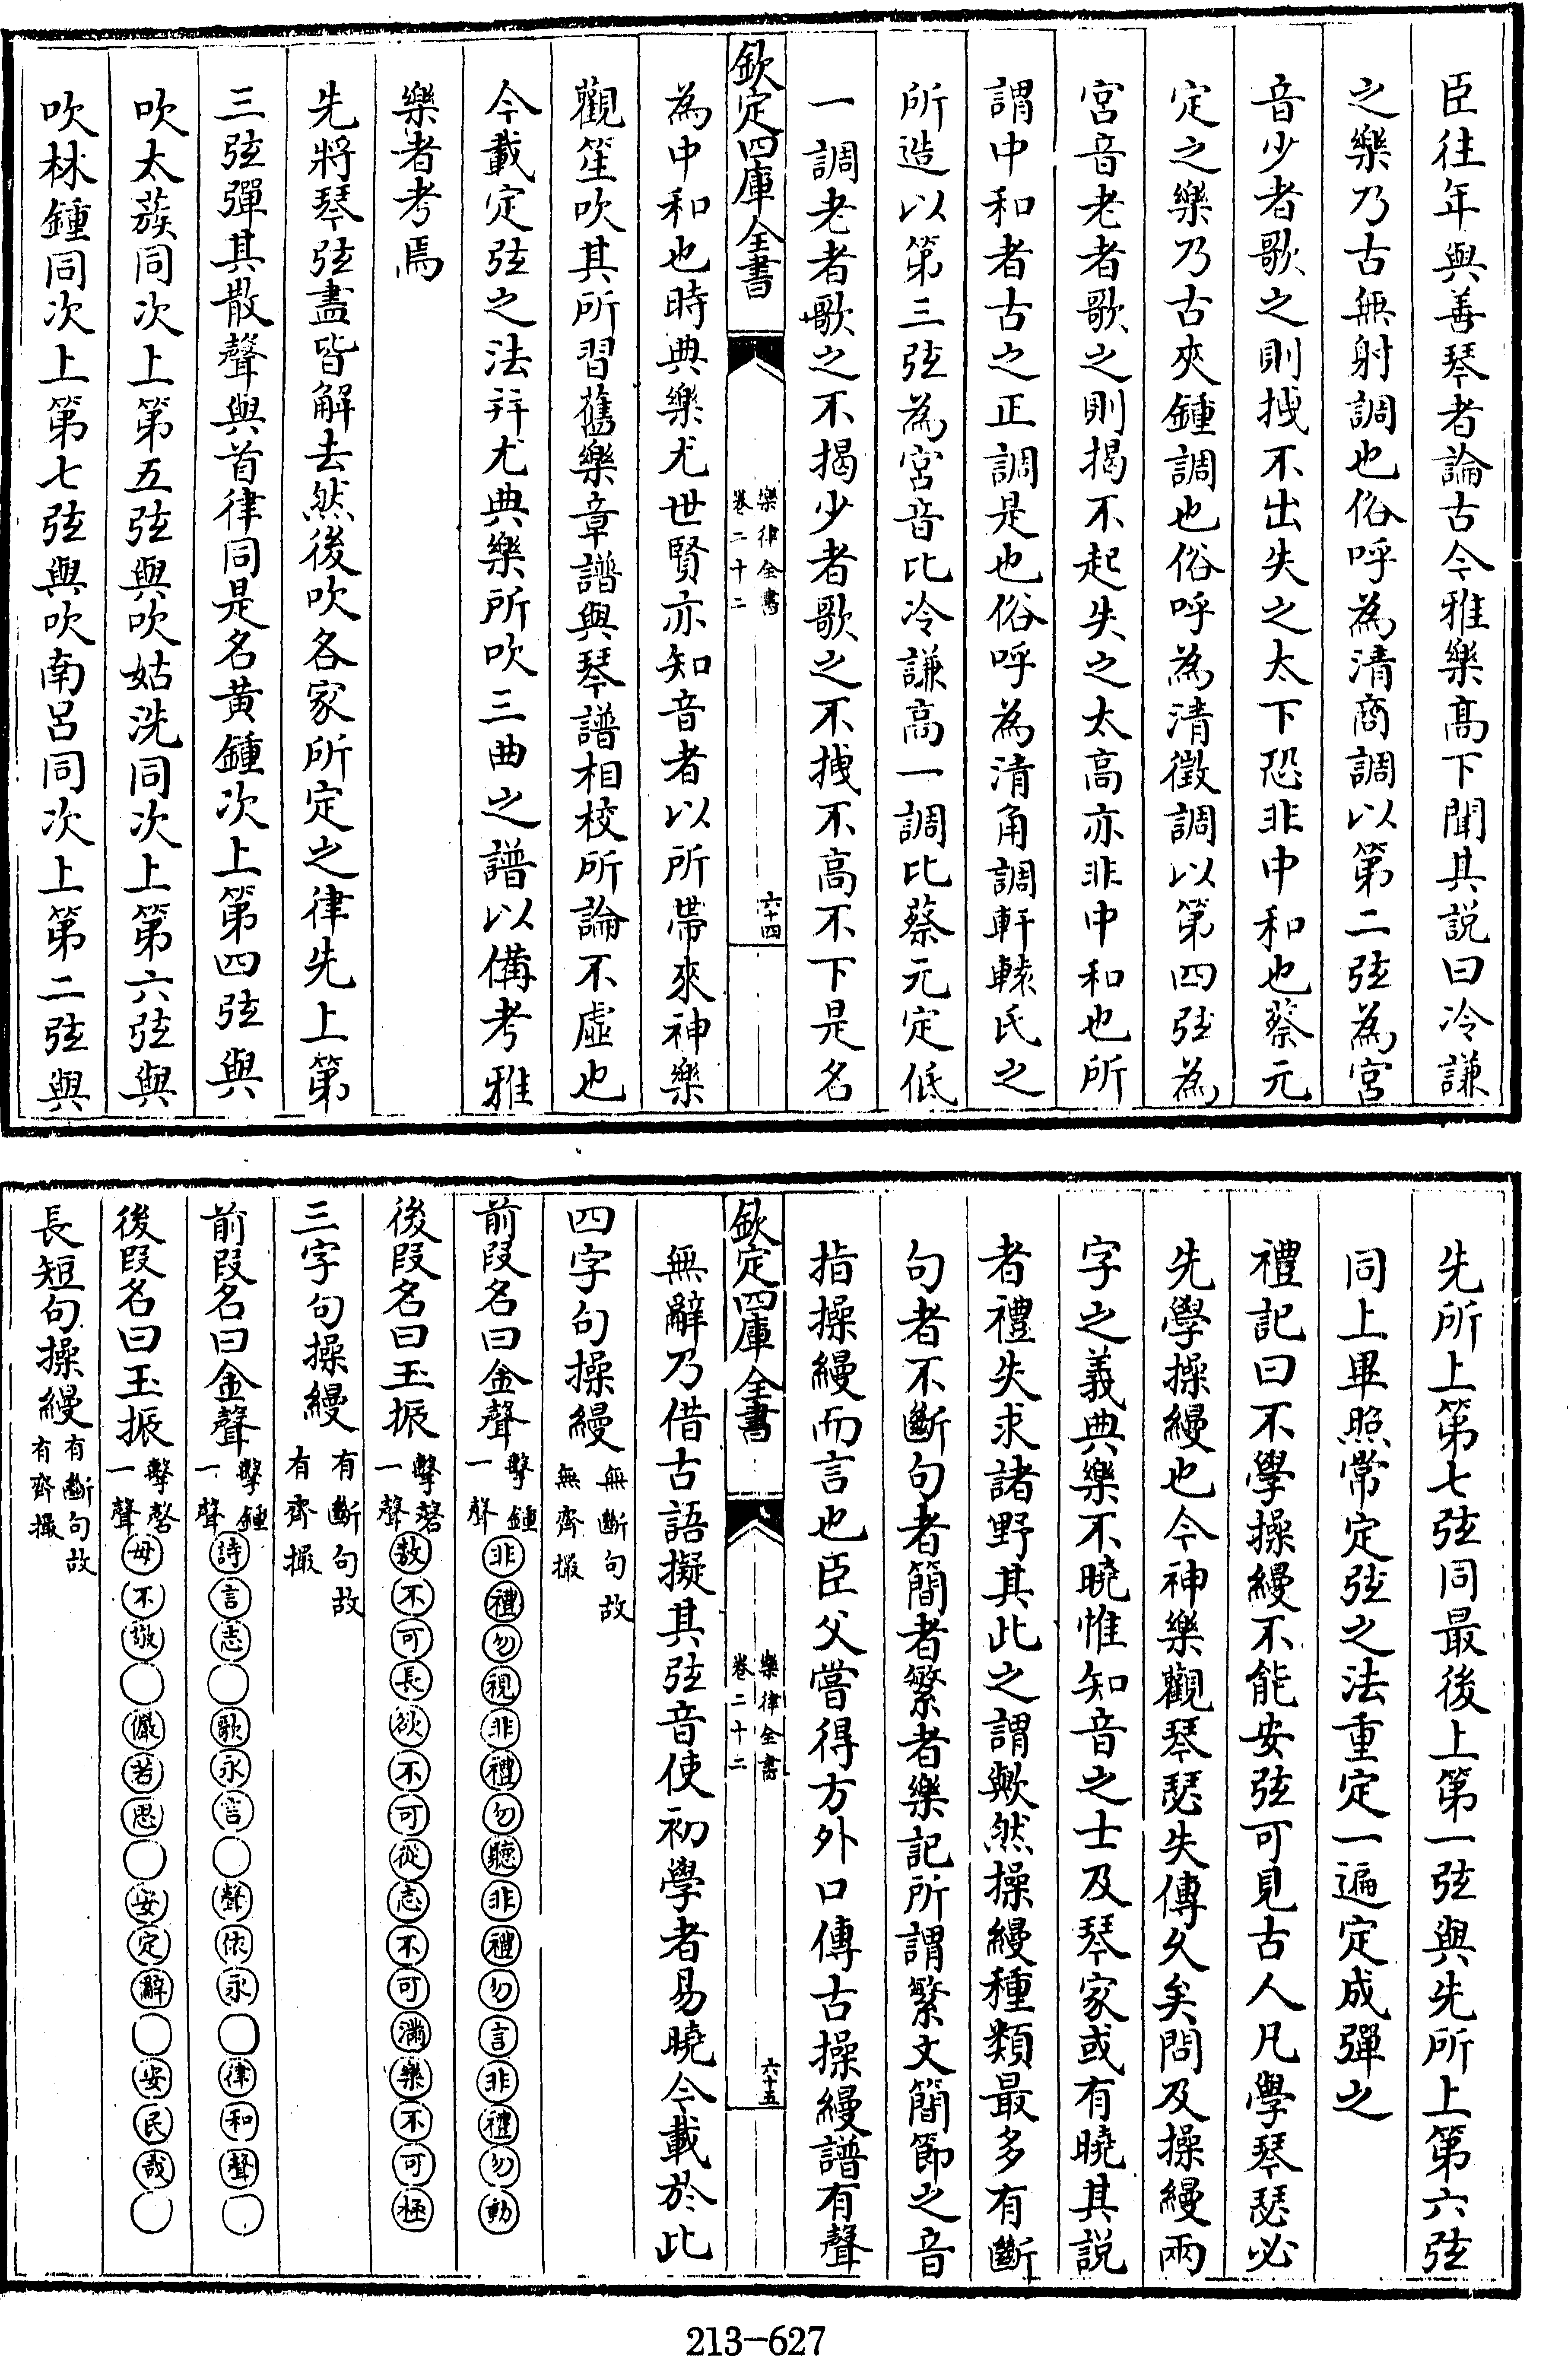 臣往年與善琴者論古今雅樂高下聞其説曰冷謙
之樂乃古無射調也俗呼為清商調以第二弦為宮
音少者歌之則拽不出失之太下恐非中和也蔡元
定之樂乃古夾鍾調也俗呼為清徵調以第四弦為
宮音老者歌之則揭不起失之太高亦非中和也所
謂中和者古之正調是也俗呼為清角調軒轅氏之
所造以第三弦為宮音比冷謙高一調比蔡元定低
一調老者歌之不揭少者歌之不拽不高不下是名
欽定四庫全書
樂律全書
卷二十二
六十四
為中和也時典樂尤世賢亦知音者以所帶來神樂
觀笙吹其所習舊樂章譜與琴譜相校所論不虛也
今載定弦之法并尤典樂所吹三曲之譜以備考雅
樂者考焉
先將琴弦盡皆解去然後吹各家所定之律先上第
三弦彈其散聲與首律同是名黃鍾次上第四弦與
吹太蔟同次上第五弦與吹姑洗同次上第六弦與
吹林鍾同次上第七弦與吹南呂同次上第二弦與
先所上第七弦同最後上第一弦與先所上第六弦
同上畢照常定弦之法重定一遍定成彈之
禮記曰不學操縵不能安弦可見古人凡學琴瑟必
先學操縵也今神樂觀琴瑟失傳久矣問及操縵兩
字之義典樂不曉惟知音之士及琴家或有曉其説
者禮失求諸野其此之謂歟然操縵種類最多有斷
句者不斷句者簡者繁者樂記所謂繁文簡節之音
指操縵而言也臣父嘗得方外口傳古操縵譜有聲
欽定四庫全書
樂律全書
卷二十二
六十五
無辭乃借古語擬其弦音使初學者易曉今載於此
四字句操縵無斷句故無齊撮
前段名曰金聲擊鍾一聲非禮勿視非禮勿聽非禮勿言非禮勿動
後段名曰玉振擊磬一聲敖不可長欲不可從志不可滿樂不可極
三字句操縵有斷句故有齊撮
前段名曰金聲擊鍾一聲詩言志○歌永言○聲依永○律和聲○
後段名曰玉振擊磬一聲毋不敬○儼若思○安定辭○安民哉○
長短句操縵有斷句故有齊撮
213-627